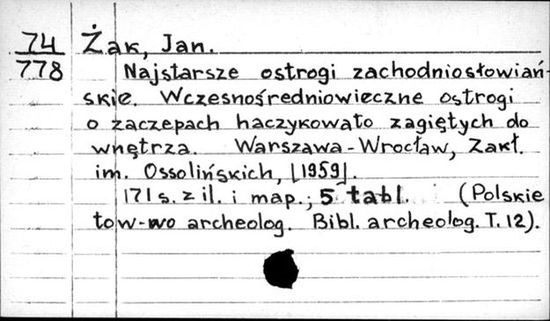 74 Żak, Jan.
778 Najstarsze ostrogi zachodniosłowiań-
skie. Wczesnośredniowieczne ostrogi
o zaczepach haczykowato zagiętych do
wnętrza. Warszawa-Wrocław, Zakł.
im. Ossolińskich, [1959].
171 s. z il. i map.; 5 tabl. (Polskie
tow-wo archeolog. Bibl. archeolog. T. 12).